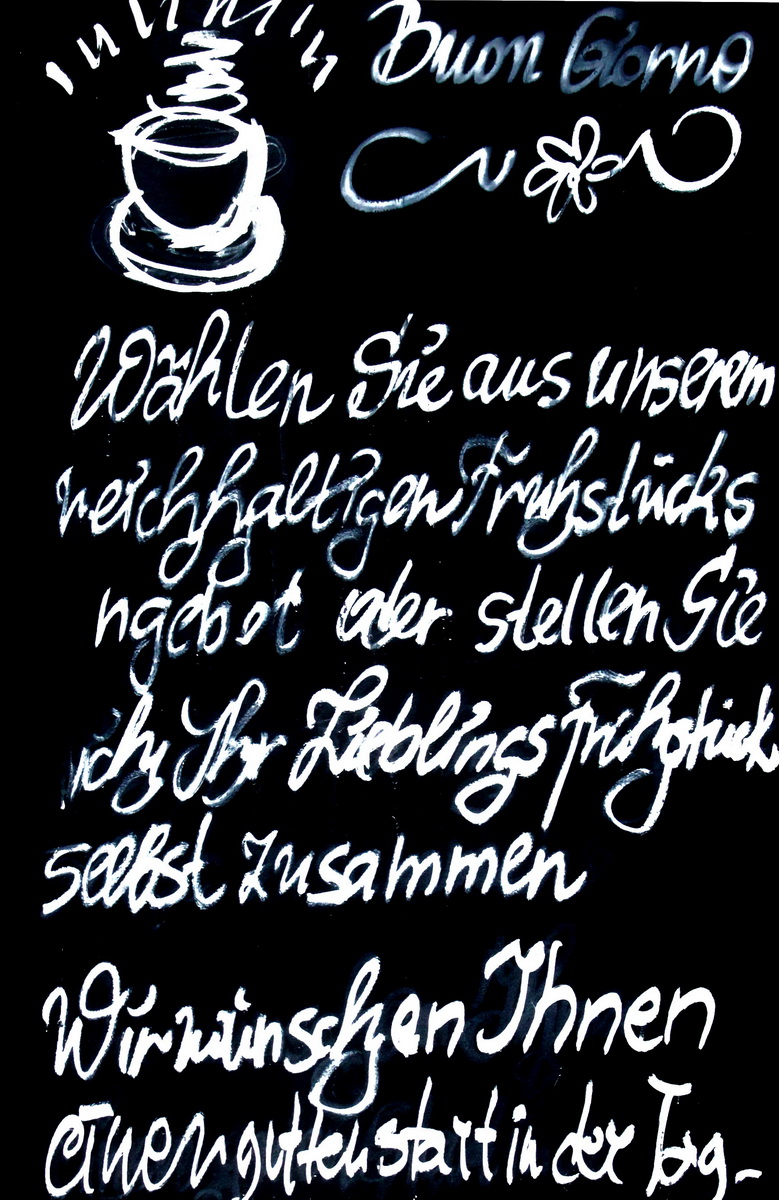 Buon Giorno
Wählen Sie aus unserem
reichhaltigen Frühstücks
ngebot oder stellen Sie
sich Ihr Lieblings Frühstück
selbst zusammen
Wir wünschen Ihnen
einen gutten start in der Tag-